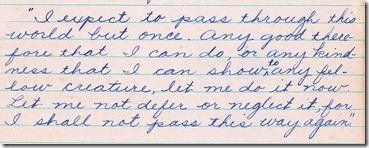 "I expect to pass through this
world but once. Any good there-
fore that I can do, or any kind-
ness that I can show to any fel-
low creature, let me do it now.
Let me not defer or neglect it, for
I shall not pass this way again."